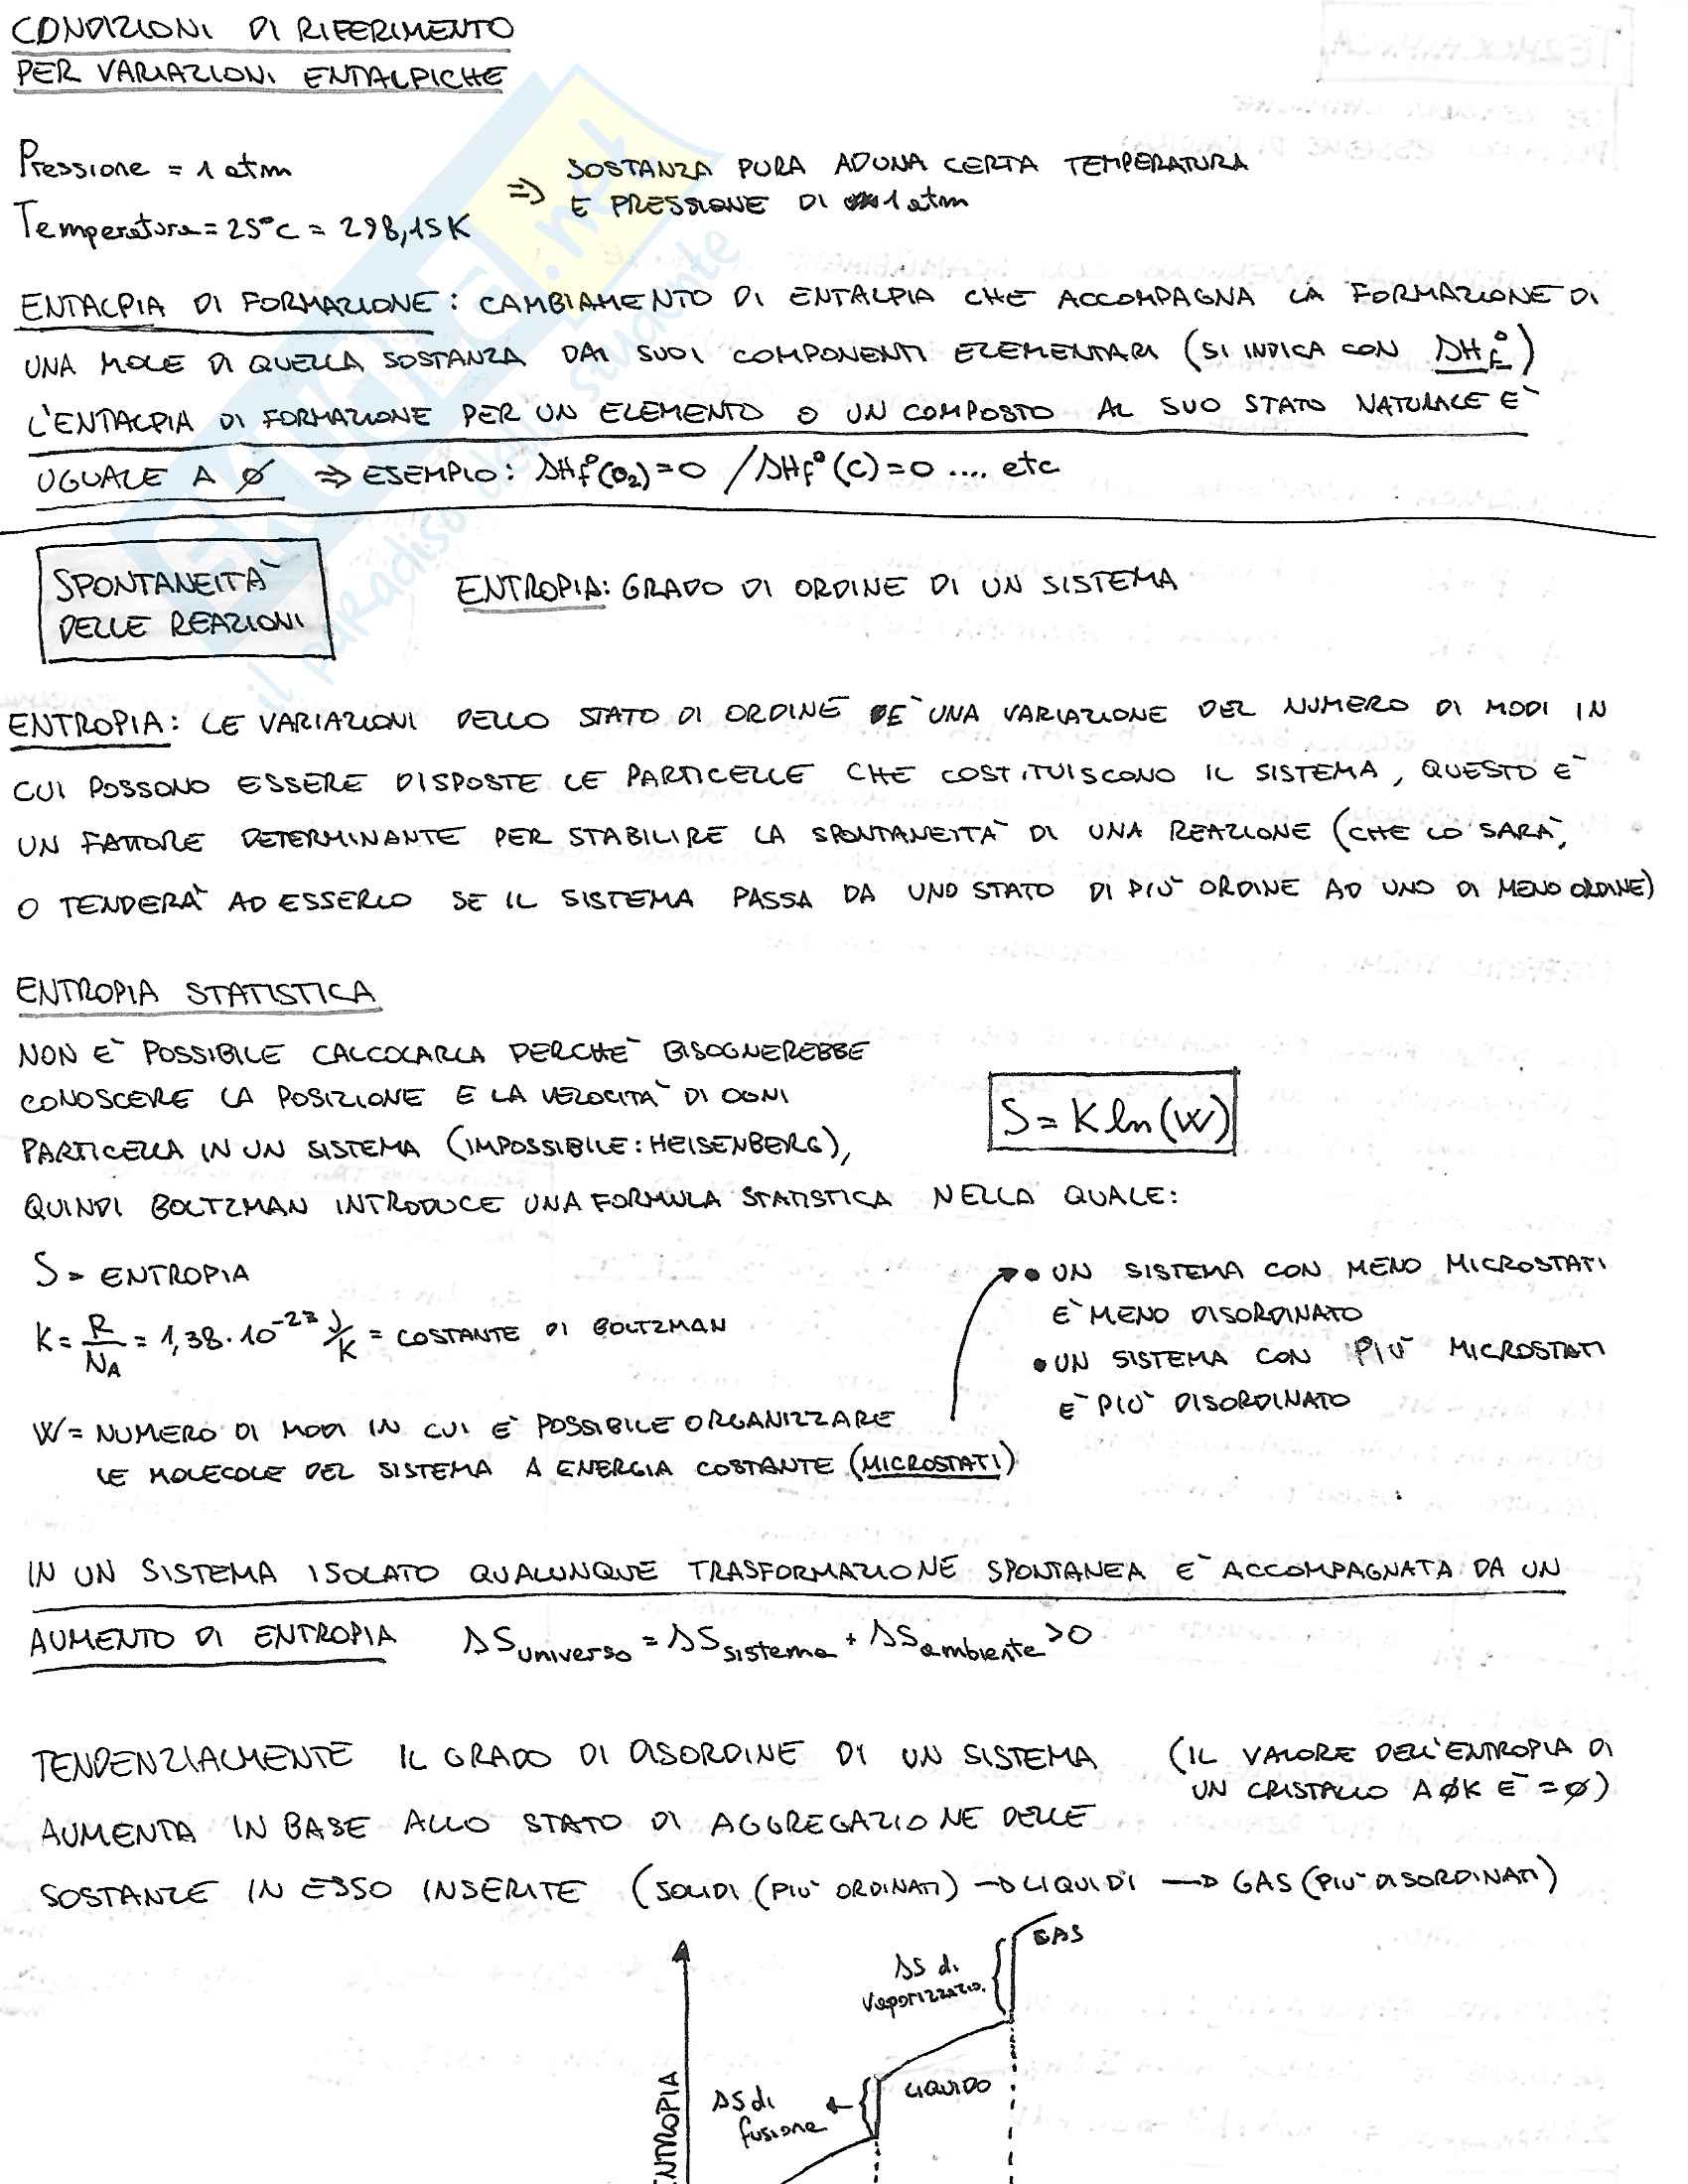 CONDIZIONI DI RIFERIMENTO
PER VARIAZIONI ENTALPICHE
Pressione = 1 atm
Temperatura = 25°C = 298,15K
=> SOSTANZA PURA AD UNA CERTA TEMPERATURA
E PRESSIONE DI 1 atm
ENTALPIA DI FORMAZIONE: CAMBIAMENTO DI ENTALPIA CHE ACCOMPAGNA LA FORMAZIONE DI
UNA MOLE DI QUELLA SOSTANZA DAI SUOI COMPONENTI ELEMENTARI (SI INDICA CON ΔHf°)
L'ENTALPIA DI FORMAZIONE PER UN ELEMENTO O UN COMPOSTO AL SUO STATO NATURALE E'
UGUALE A Ø => ESEMPIO: ΔHf°(O₂)=0 / ΔHf°(C)=0 .... etc
SPONTANEITA'
DELLE REAZIONI
ENTROPIA: GRADO DI ORDINE DI UN SISTEMA
ENTROPIA: LE VARIAZIONI DELLO STATO DI ORDINE E' UNA VARIAZIONE DEL NUMERO DI MODI IN
CUI POSSONO ESSERE DISPOSTE LE PARTICELLE CHE COSTITUISCONO IL SISTEMA, QUESTO E'
UN FATTORE DETERMINANTE PER STABILIRE LA SPONTANEITA' DI UNA REAZIONE (CHE LO SARA',
O TENDERA' AD ESSERLO SE IL SISTEMA PASSA DA UNO STATO DI PIU' ORDINE AD UNO DI MENO ORDINE)
ENTROPIA STATISTICA
NON E' POSSIBILE CALCOLARLA PERCHE' BISOGNEREBBE
CONOSCERE LA POSIZIONE E LA VELOCITA' DI OGNI
PARTICELLA IN UN SISTEMA (IMPOSSIBILE: HEISENBERG),
S = K ln(W)
QUINDI BOLTZMAN INTRODUCE UNA FORMULA STATISTICA NELLA QUALE:
S = ENTROPIA
K = R/N_A = 1,38·10⁻²³ J/K = COSTANTE DI BOLTZMAN
W = NUMERO DI MODI IN CUI E' POSSIBILE ORGANIZZARE
LE MOLECOLE DEL SISTEMA A ENERGIA COSTANTE (MICROSTATI)
• UN SISTEMA CON MENO MICROSTATI
E' MENO DISORDINATO
• UN SISTEMA CON PIU' MICROSTATI
E' PIU' DISORDINATO
IN UN SISTEMA ISOLATO QUALUNQUE TRASFORMAZIONE SPONTANEA E' ACCOMPAGNATA DA UN
AUMENTO DI ENTROPIA ΔS universo = ΔS sistema + ΔS ambiente > 0
TENDENZIALMENTE IL GRADO DI DISORDINE DI UN SISTEMA
AUMENTA IN BASE ALLO STATO DI AGGREGAZIONE DELLE
SOSTANZE IN ESSO INSERITE (SOLIDI (PIU' ORDINATI) → LIQUIDI → GAS (PIU' DISORDINATI)
(IL VALORE DELL'ENTROPIA DI
UN CRISTALLO A ØK E' = Ø)
GAS
ΔS di
vaporizzazio.
LIQUIDO
ΔS di
fusione
ENTROPIA
il paradiso dello studente